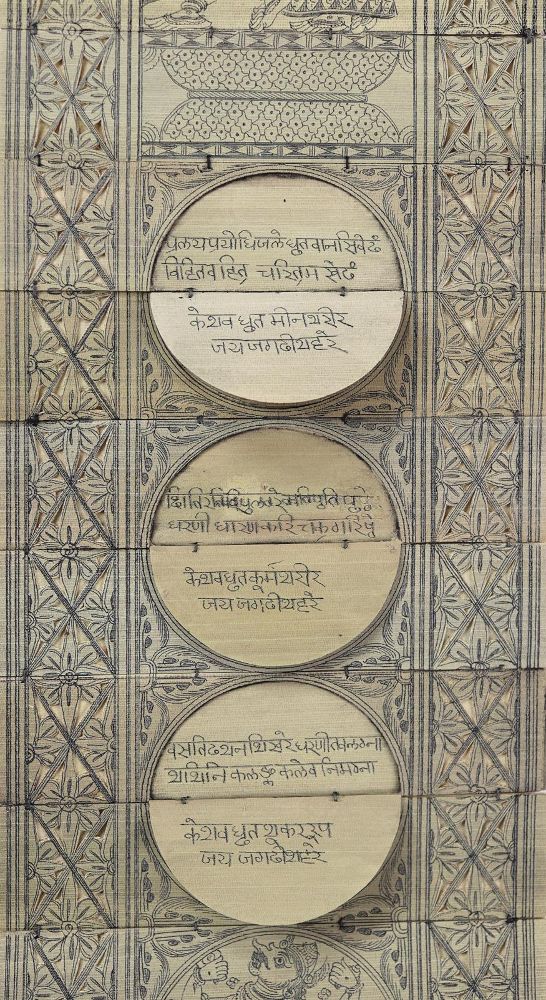 प्रलयपयोधिजले धृतवानसिवेदं
विहितवहित्र चरित्रम खेदं
केशव धृत मीनशरीर
जय जगदीशहरे
धरणी धारणकरि चक्रगरिष्ठे
केशवधृतकूर्मशरीर
जय जगदीशहरे
वसतिदशनशिखरे धरणीतवलग्ना
शशिनि कलङ्क कलेव निमग्ना
केशव धृतशूकररूप
जय जगदीशहरे